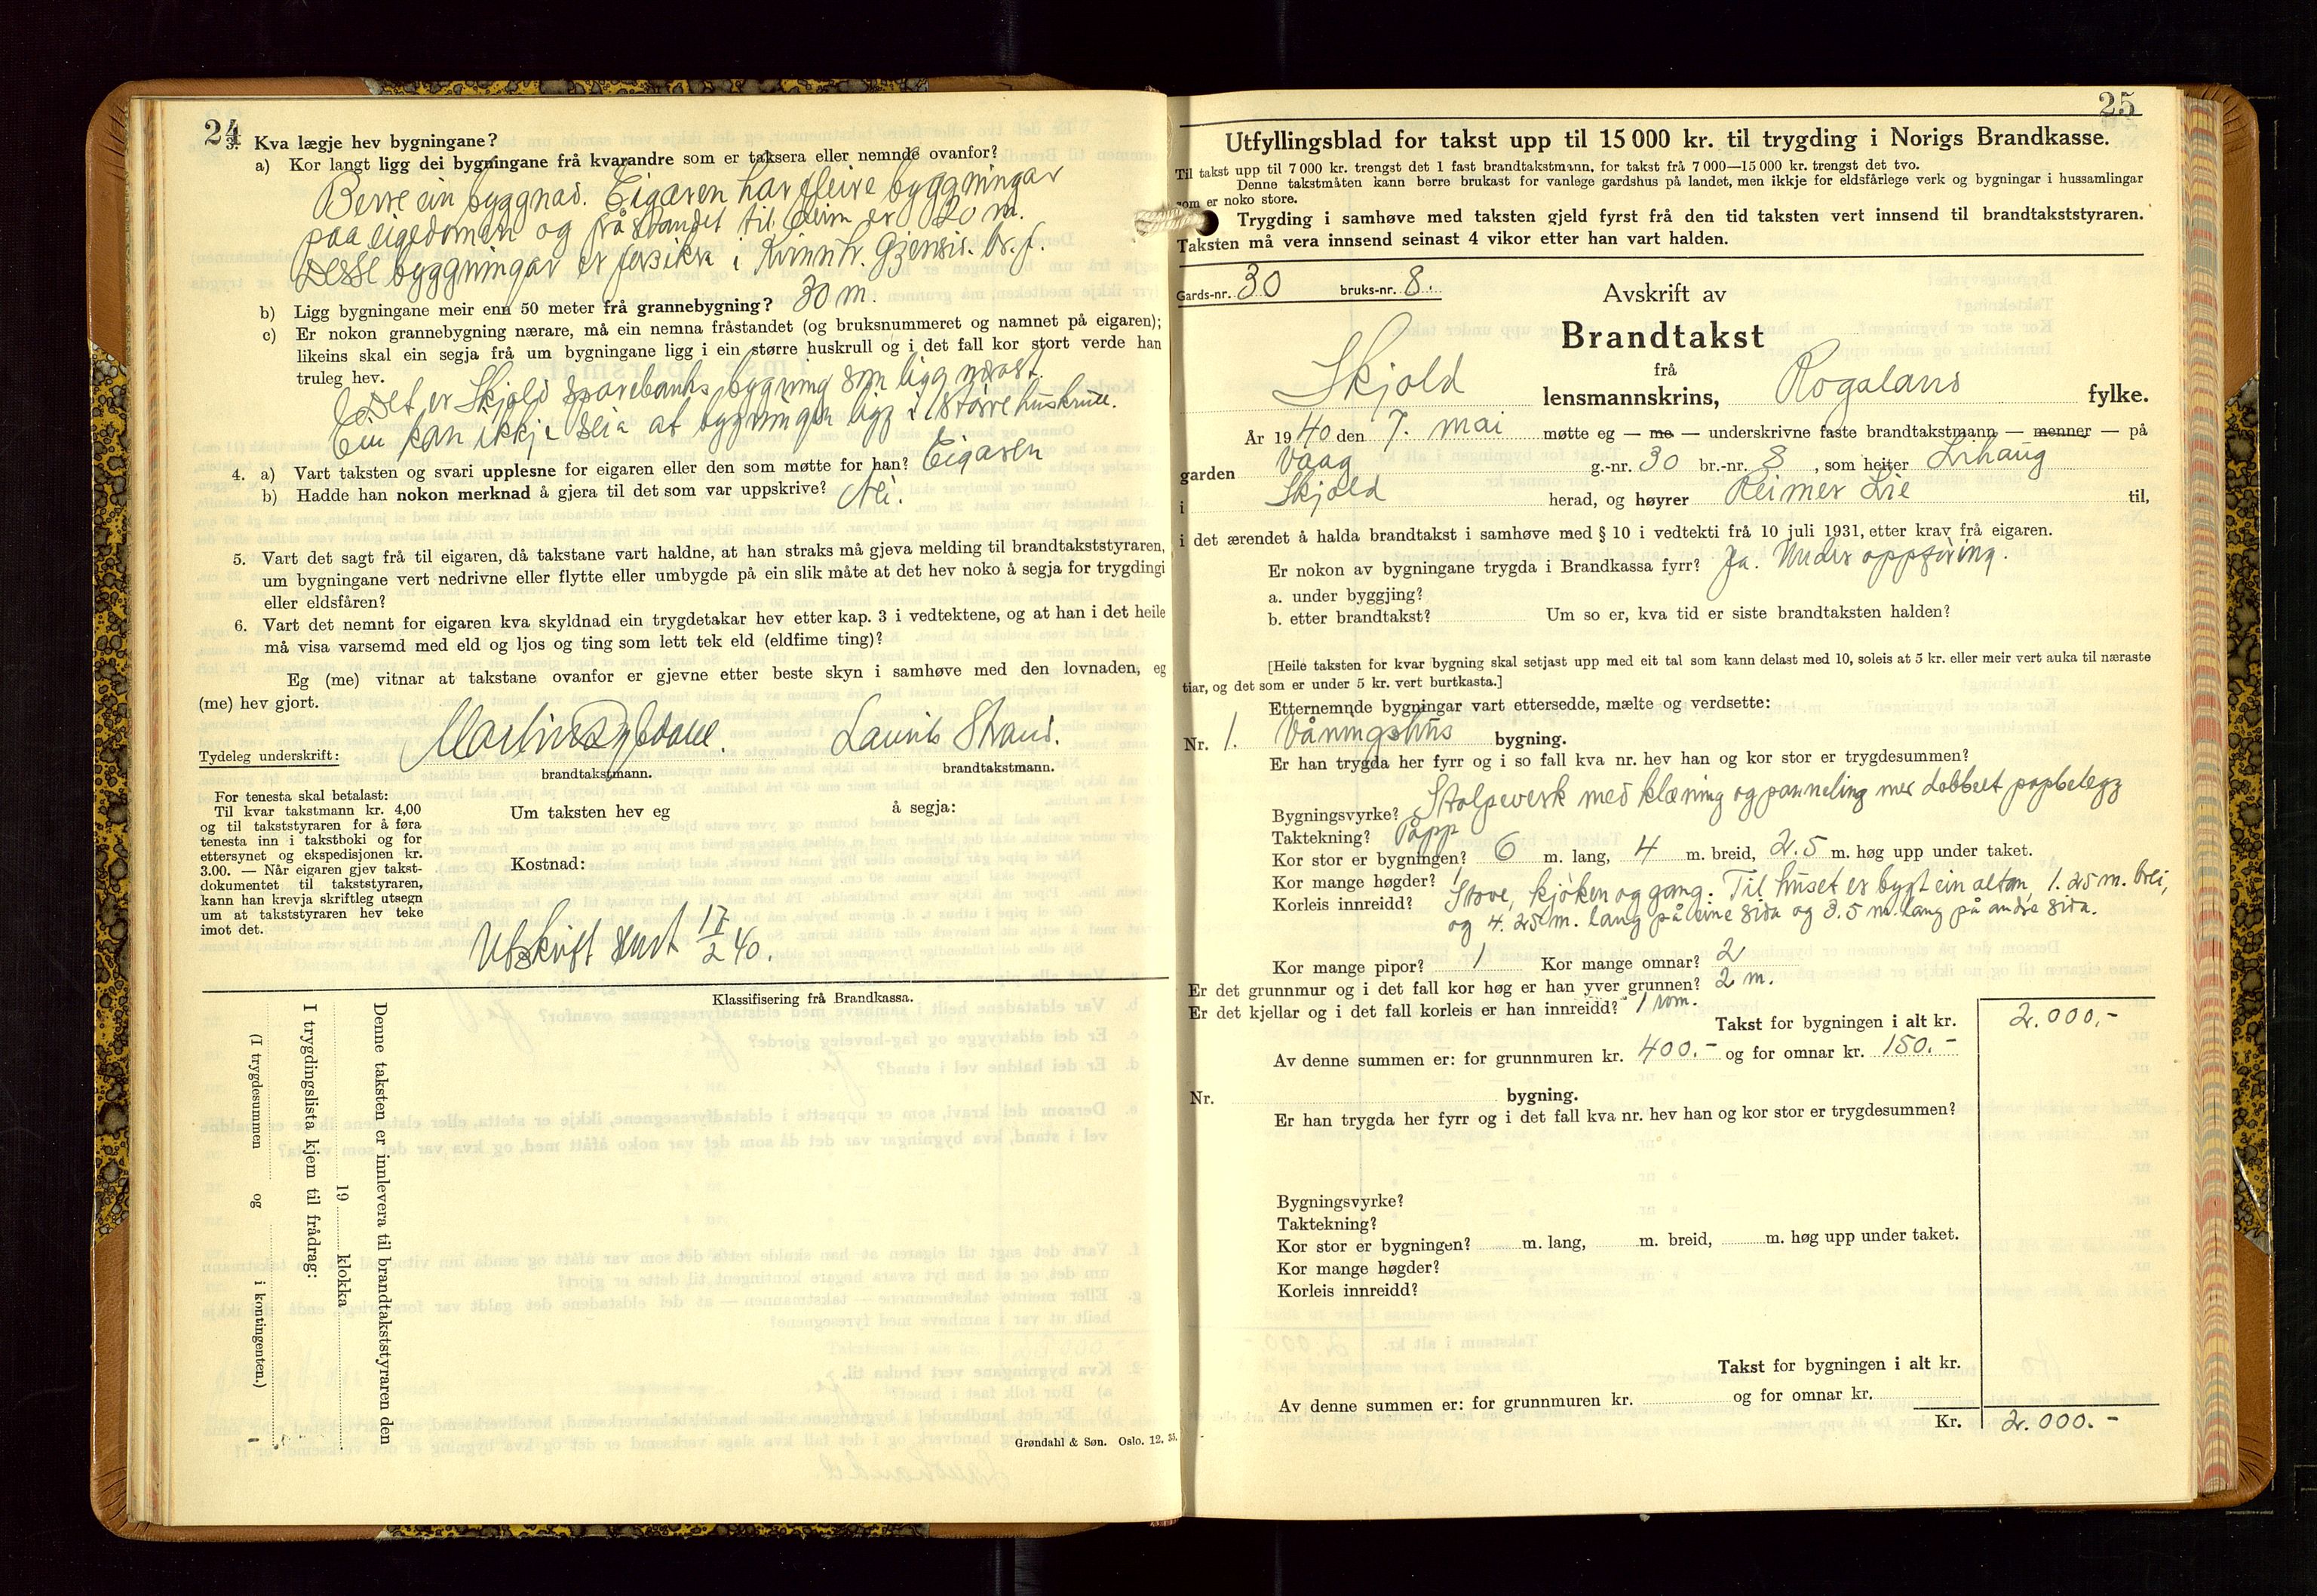 24
3. Kva lægje hev bygningane?
a) Kor langt ligg dei bygningane frå kvarandre som er taksera eller nemnde ovanfor?
Berre ein byggnad. Eigaren har fleire byggningar
paa eigedomen og fråstandet til deim er 20 m.
Desse byggningar er forsikra i
b) Ligg bygningane meir enn 50 meter frå grannebygning? 30 m.
c) Er nokon grannebygning nærare, må ein nemna fråstandet (og bruksnummeret og namnet på eigaren);
likeins skal ein segja frå um bygningane ligg i ein større huskrull og i det fall kor stort verde han
truleg hev.
Det er Skjold sparebanks bygning som ligg nærast.
Ein kan ikkje seia at bygningen ligg i større huskrull.
4. a) Vart taksten og svari upplesne for eigaren eller den som møtte for han? Eigaren
b) Hadde han nokon merknad å gjera til det som var uppskrive? Nei.
5. Vart det sagt frå til eigaren, då takstane vart haldne, at han straks må gjeva melding til brandtakststyraren,
um bygningane vert nedrivne eller flytte eller umbygde på ein slik måte at det hev noko å segja for trygdingi
eller eldsfåren?
6. Vart det nemnt for eigaren kva skyldnad ein trygdetakar hev etter kap. 3 i vedtektene, og at han i det heile
må visa varsemd med eld og ljos og ting som lett tek eld (eldfime ting)?
Eg (me) vitnar at takstane ovanfor er gjevne etter beste skyn i samhøve med den lovnaden, eg
(me) hev gjort.
Tydeleg underskrift: Laurits Strand.
brandtakstmann. brandtakstmann.
For tenesta skal betalast:
Til kvar takstmann kr. 4,00
og til takststyraren for å føra
tenesta inn i takstboki og for
ettersynet og ekspedisjonen kr.
3.00. — Når eigaren gjev takst-
dokumentet til takststyraren,
kann han krevja skriftleg utsegn
um at takststyraren hev teke
imot det.
Um taksten hev eg å segja:
Kostnad:
Utskrift sendt 17/2 40.
Klassifisering frå Brandkassa.
Denne taksten er innlevera til brandtakststyraren den
19 klokka
I trygdingslista kjem til frådrag:
(I trygdesummen og i kontingenten.)
Grøndahl & Søn. Oslo. 12. 35.
25
Utfyllingsblad for takst upp til 15 000 kr. til trygding i Norigs Brandkasse.
Til takst upp til 7 000 kr. trengst det 1 fast brandtakstmann, for takst frå 7 000—15 000 kr. trengst det tvo.
Denne takstmåten kann berre brukast for vanlege gardshus på landet, men ikkje for eldsfårlege verk og bygningar i hussamlingar
som er noko store.
Trygding i samhøve med taksten gjeld fyrst frå den tid taksten vert innsend til brandtakststyraren.
Taksten må vera innsend seinast 4 vikor etter han vart halden.
Gards-nr. 30 bruks-nr. 8.
Avskrift av
Brandtakst
frå
Skjold lensmannskrins, Rogaland fylke.
År 1940 den 7. mai møtte eg — me — underskrivne faste brandtakstmann — menner — på
garden Vaag g.-nr. 30 br.-nr. 8, som heiter Lihaug
i Skjold herad, og høyrer Reimer Lie til,
i det ærendet å halda brandtakst i samhøve med § 10 i vedtekti frå 10 juli 1931, etter krav frå eigaren.
Er nokon av bygningane trygda i Brandkassa fyrr? Ja. Under oppføring.
a. under byggjing?
b. etter brandtakst? Um so er, kva tid er siste brandtaksten halden?
[Heile taksten for kvar bygning skal setjast upp med eit tal som kann delast med 10, soleis at 5 kr. eller meir vert auka til næraste
tiar, og det som er under 5 kr. vert burtkasta.]
Etternemnde bygningar vart ettersedde, mælte og verdsette:
Nr. 1. Våningshus bygning.
Er han trygda her fyrr og i so fall kva nr. hev han og kor stor er trygdesummen?
Bygningsvyrke? Stolpeverk med klæning og panneling med dobbelt papbelegg
Taktekning? Papp
Kor stor er bygningen? 6 m. lang, 4 m. breid, 2.5 m. høg upp under taket.
Kor mange høgder? 1
Korleis innreidd? Stove, kjøken og gang. Til huset er bygt ein altan, 1.25 m. brei,
og 4.25 m. lang på eine sida og 3.5 m. lang på andre sida.
Kor mange pipor? 1 Kor mange omnar? 2
Er det grunnmur og i det fall kor høg er han yver grunnen? 2 m.
Er det kjellar og i det fall korleis er han innreidd? 1 rom.
Takst for bygningen i alt kr. 2.000,-
Av denne summen er: for grunnmuren kr. 400.- og for omnar kr. 150.-
Nr. bygning.
Er han trygda her fyrr og i det fall kva nr. hev han og kor stor er trygdesummen?
Bygningsvyrke?
Taktekning?
Kor stor er bygningen? m. lang, m. breid, m. høg upp under taket.
Kor mange høgder?
Korleis innreidd?
Takst for bygningen i alt kr.
Av denne summen er: for grunnmuren kr. og for omnar kr.
Kr. 2.000.-